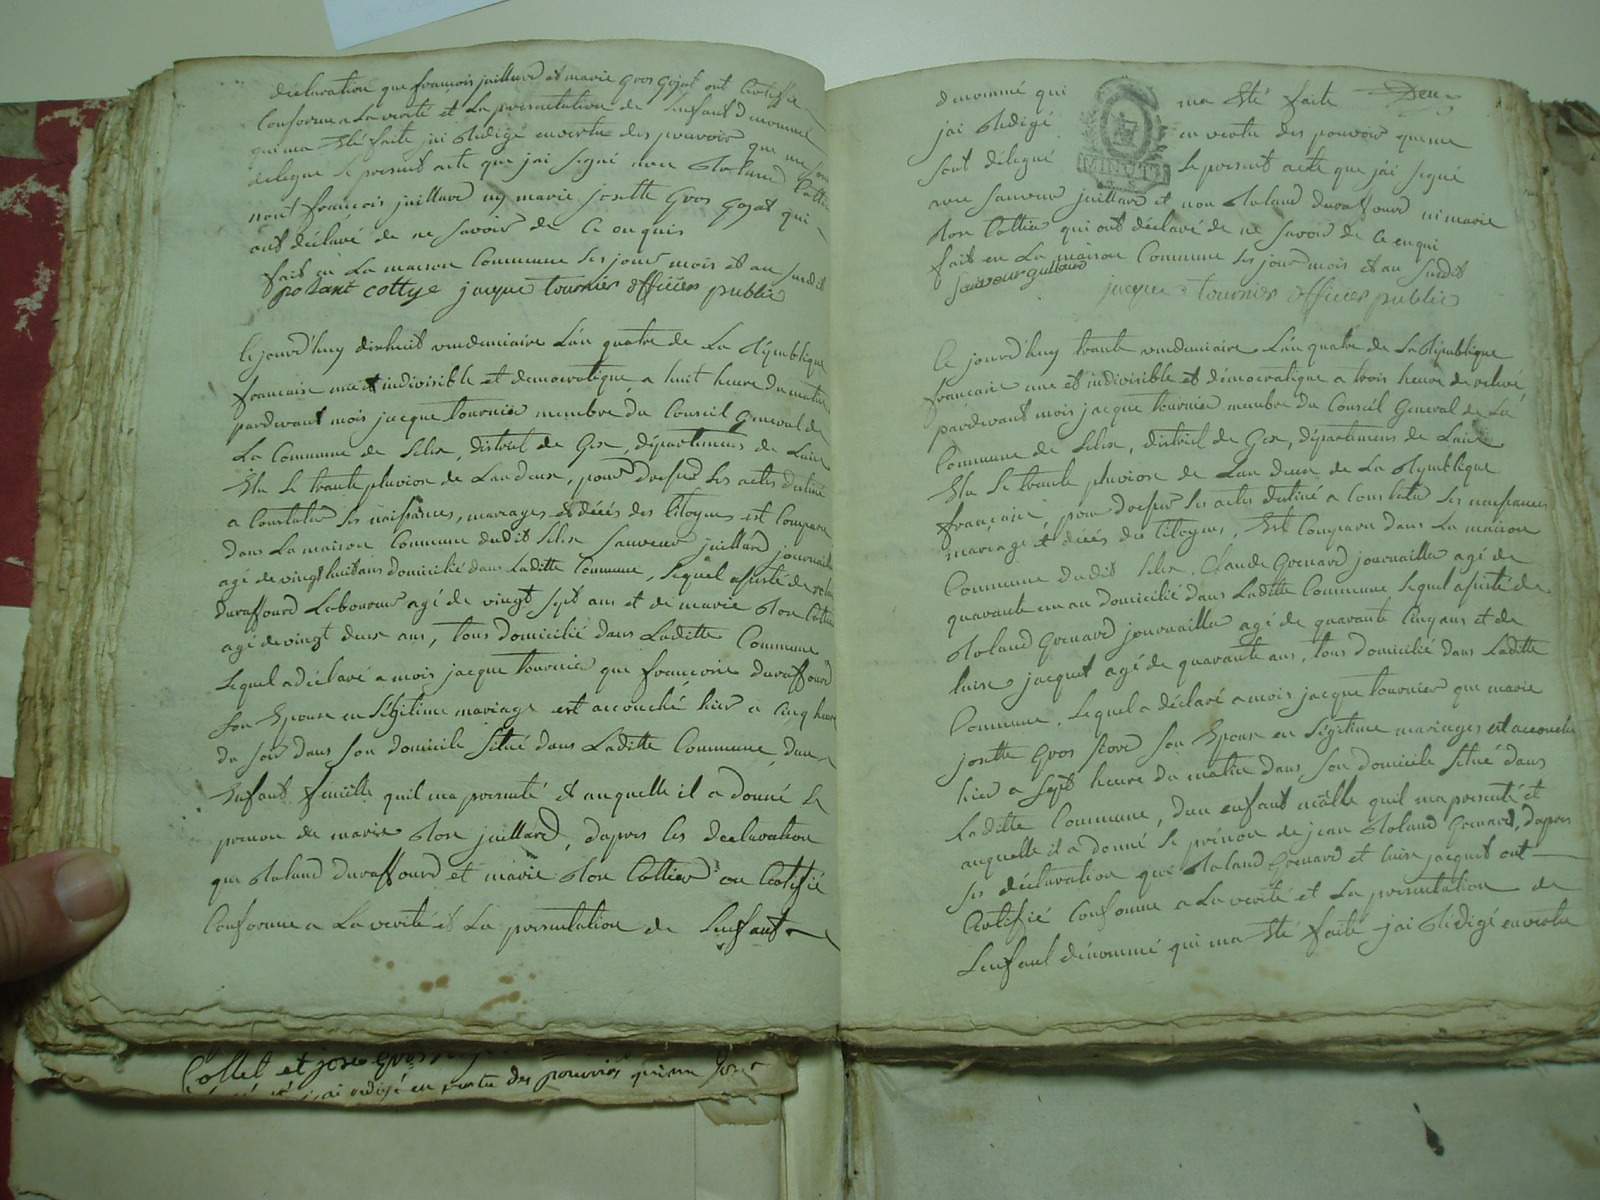 declaration que francois juillard et marie gros gojat ont Certiffié
Conforme a La verité et La presentation de Lenfant denommé
qui ma Eté faite jai Rédigé en vertu des pouvoir que me sont
delegué le present acte que jai signé avec Roland Cottier
non françois juillard ny marie josette Gros Gojat qui
ont déclaré de ne savoir de Ce enquis
fait en La maison Commune Les jour mois et an susdit
rolant cottye jacque tournier officier public
Ce jourd'huy dixhuit vendemiaire Lan quatre de La République
francaise une et indivisible et democratique a huit heure du matin
pardevant mois jacque tournier membre du Conseil General de
La Commune de Lelex, district de Gex, département de Lain
Elu Le trante pluviose de Lan deux, pour dresser Les actes destiné
a Constater Les naissances, mariages et décés des Citoyens est Comparu
dans La maison Commune dudit Lelex Sauveur juillard journaillier
agé de vingt huit ans domicilié dans Laditte Commune, Lequel assisté de Roland
duraffourd Laboureur agé de vingt sept ans et de marie Rose Cottier
agé de vingt deux ans, tous domicilié dans Laditte Commune
Lequel a déclaré a mois jacque tournier que francoise duraffourd
son Epouse en Légitime mariage est accouché hier a Cinq heure
du soir dans son domicile situé dans Laditte Commune dun
Enfant femélle quil ma presenté et auquelle il a donné Le
prenon de marie Rose juillard, dapres Les declaration
que Roland duraffourd et marie Rose Cottier on Certifié
Conforme a La verité et La presentation de Lenfant
denommé qui ma Eté faite Deux
jai Rédigé en vertu des pouvoir qui me
sont délegué Le present acte que j'ai signé
MINUTE
avec sauveur juillard et non Roland duraffourd ni marie
Rose Cottier qui ont déclaré de ne savoir de Ce enqui
fait en La maison Commune Les jour mois et an susdit
Sauveur guillard
jacque tournier officier public
Ce jourd'huy trante vendemiaire Lan quatre de La République
française une et indivisible et démocratique a trois heure de relevé
pardevant mois jacque tournier membre du Conseil General de La
Commune de Lelex, district de Gex, département de Lain
Elu Le trante pluviose de Lan deux de La République
française, pour dresser Les actes destiné a Constater Les naissances
mariage et décés des Citoyens, Est Comparu dans La maison
Commune dudit Lelex, Claude Grenard journaillier agé de
quarante un an domicilié dans Laditte Commune Lequel assisté de
Roland Grenard journaillier agé de quarante Cinq ans et de
luise jacquet agé de quarante ans, tous domicilié dans Laditte
Commune, Lequel a déclaré a mois jacque tournier que marie
josette Gros son Epouse en Légitime mariages est accouché
hier a sept heure du matin dans son domicile situé dans
Laditte Commune, dun enfant mâlle quil ma presenté et
auquelle il a donné Le prénon de jean Roland Grenard, dapres
Les déclaration que Roland Grenard et luise jacquet ont
Certifié Conforme a La verité et La presentation de
Lenfant dénommé qui ma Eté faité jai Rédigé en vertu
Collet et jose Gros
jai redigé en vertu des pouvoirs qui me sont